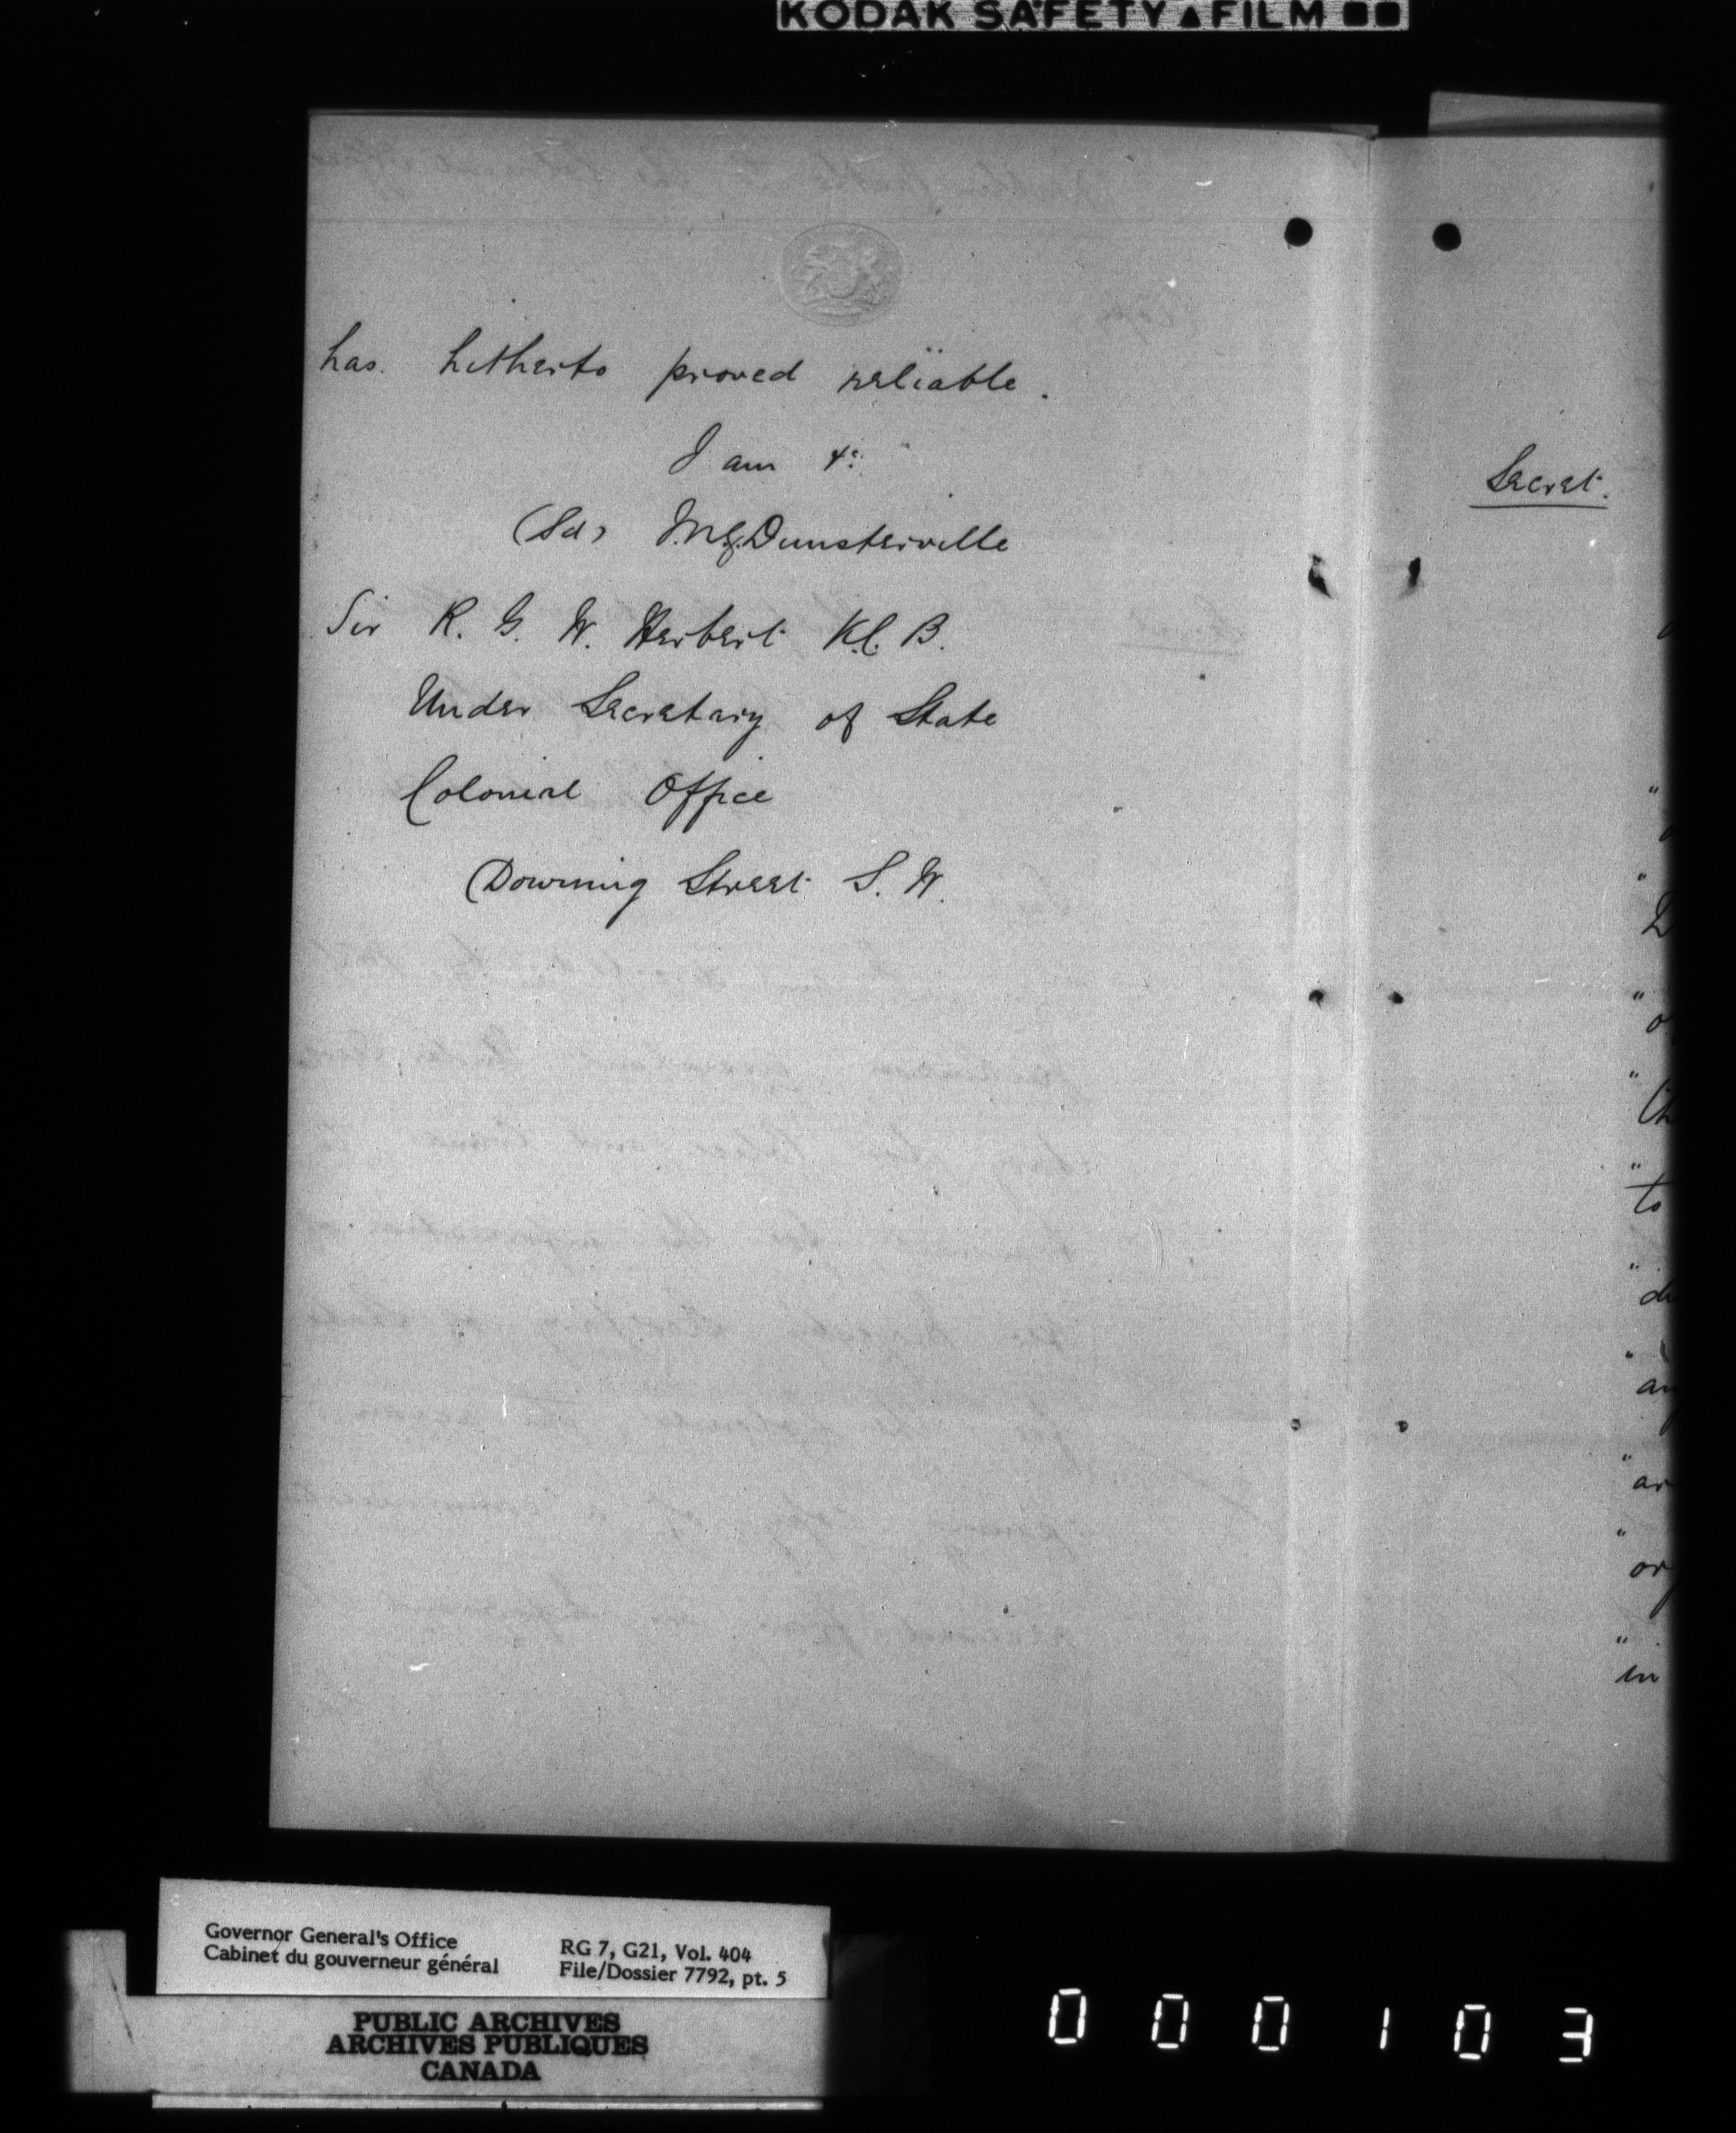 KODAK SAFETY ▲ FILM
has. hitherto proved reliable.
I am &c:
(Sd) Dunsterville
Sir R. G. W. Herbert K.C.B.
Under Secretary of State
Colonial Office
Downing Street S. W.
Secret.
"
"
"
"
to
"
"
"
"
in
Governor General's Office
Cabinet du gouverneur général
RG 7, G21, Vol. 404
File/Dossier 7792, pt. 5
PUBLIC ARCHIVES
ARCHIVES PUBLIQUES
CANADA
000103